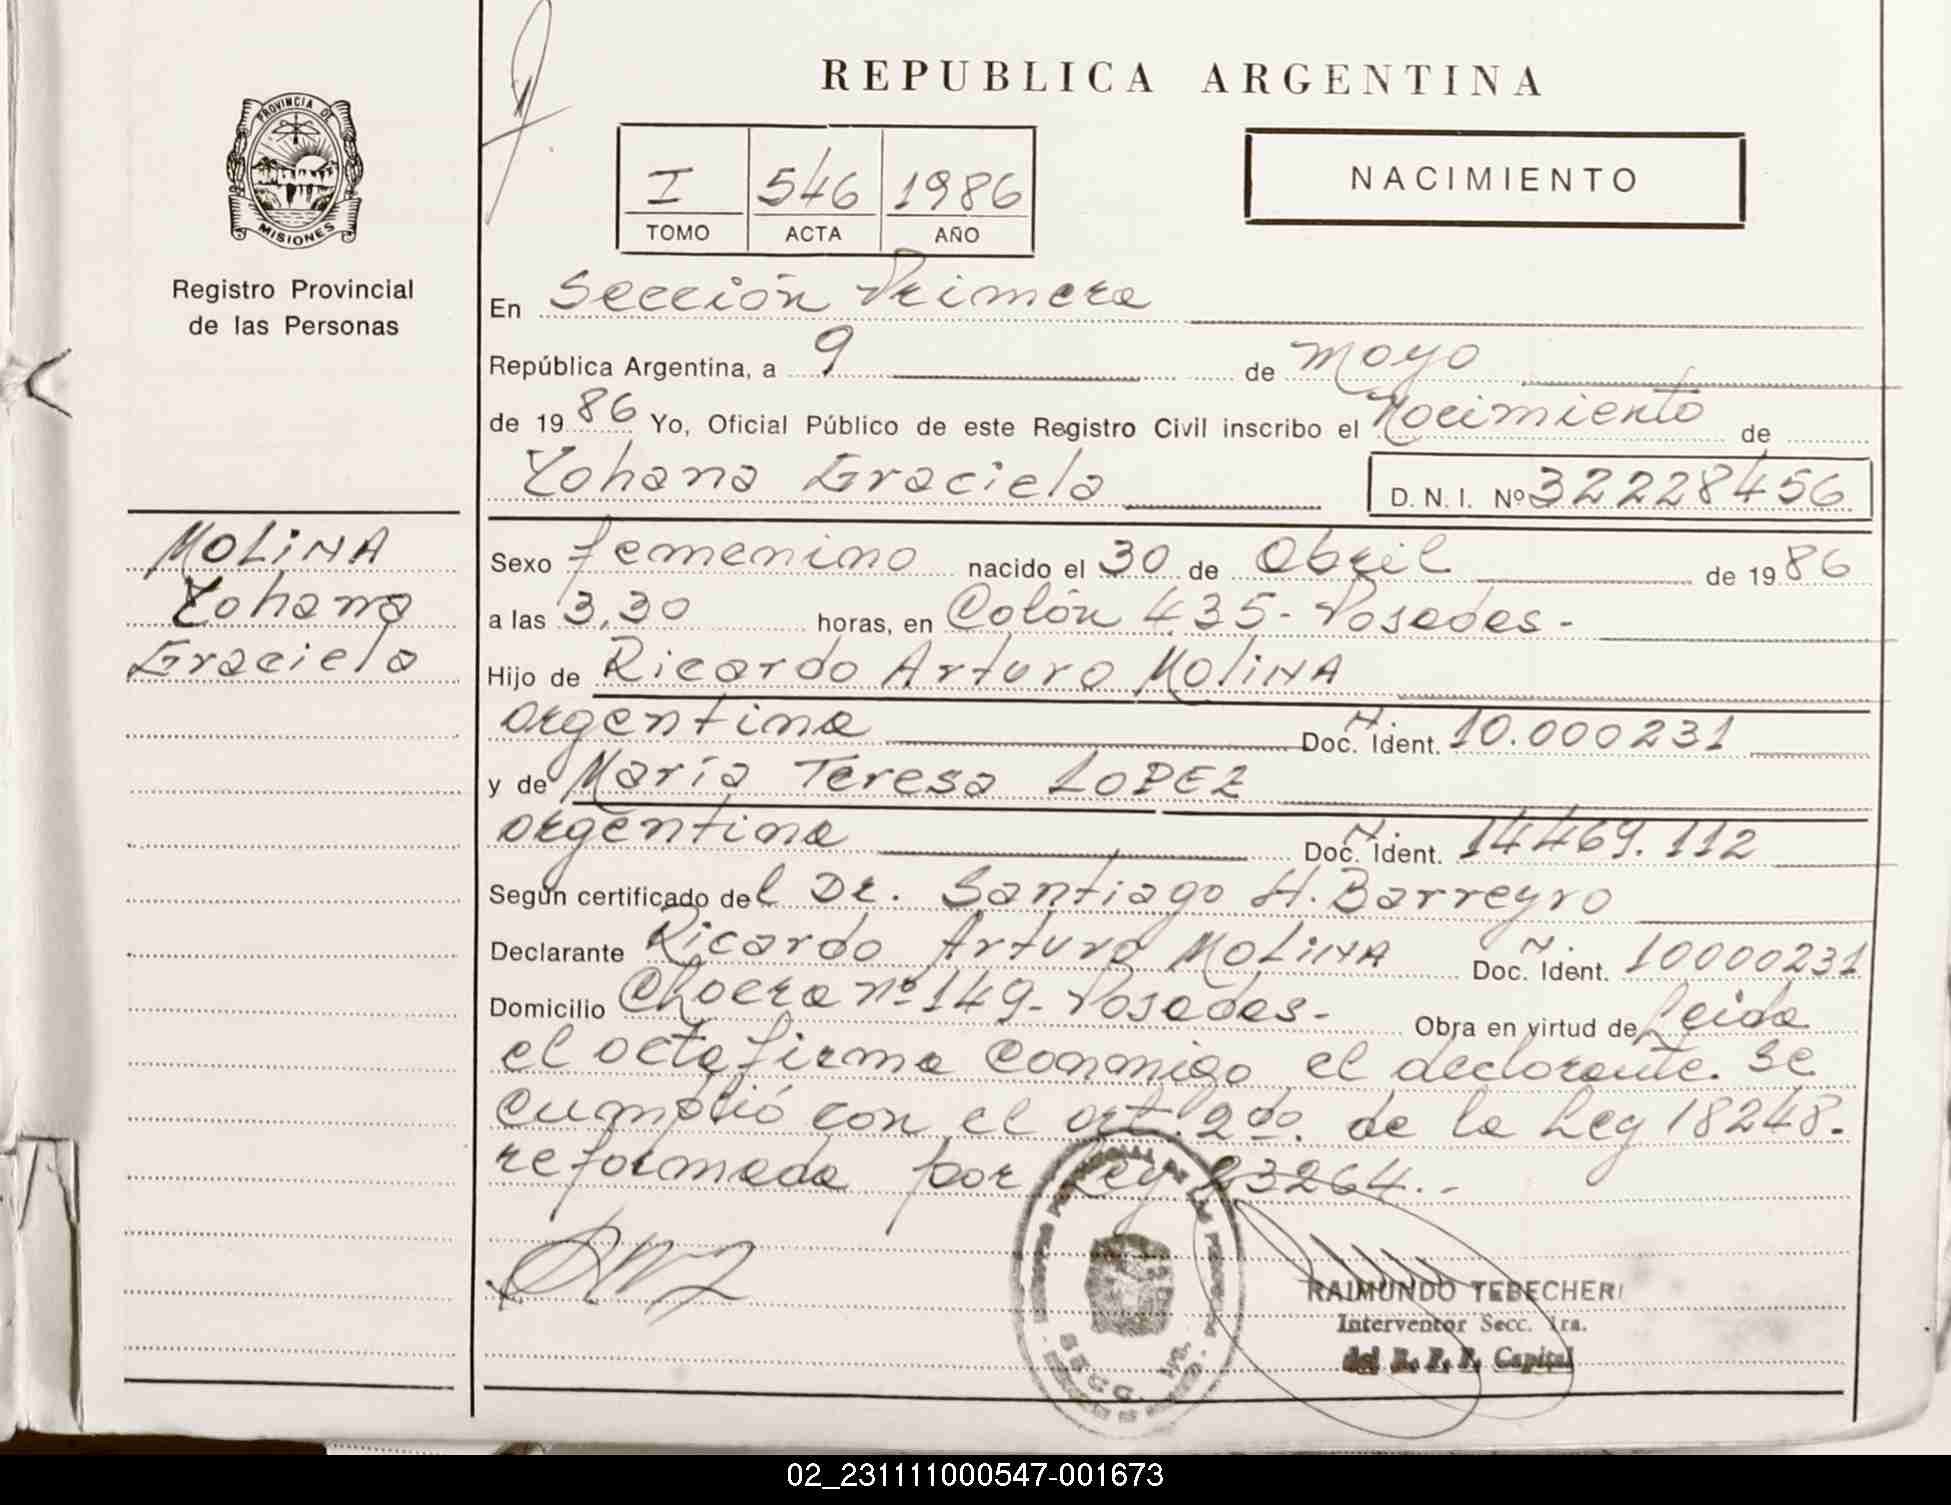 REPUBLICA ARGENTINA
PROVINCIA DE
MISIONES
Registro Provincial
de las Personas
I 546 1986
TOMO ACTA AÑO
NACIMIENTO
En Sección Primera
República Argentina, a 9 de mayo
de 1986 Yo, Oficial Público de este Registro Civil inscribo el Nacimiento de
Yohana Graciela D.N.I. Nº 32228456
MOLINA
Yohana
Graciela
Sexo femenino nacido el 30 de Abril de 1986
a las 3,30 horas, en Colón 435 - Posadas -
Hijo de Ricardo Arturo MOLINA
argentina Doc. Ident. N. 10.000231
y de María Teresa LOPEZ
argentina Doc. Ident. N. 14469.112
Según certificado del Dr. Santiago H. Barreyro
Declarante Ricardo Arturo MOLINA Doc. Ident. N. 10000231
Domicilio nº 149 - Posadas - Obra en virtud de Leida
el acta firma conmigo el declarante. Se
cumplió con el art. 2do. de la Ley 18248 -
reformada por Ley 23264. -
RAIMUNDO TEBECHERI
Interventor Secc. 1ra.
del R. P. P. Capital
02_231111000547-001673